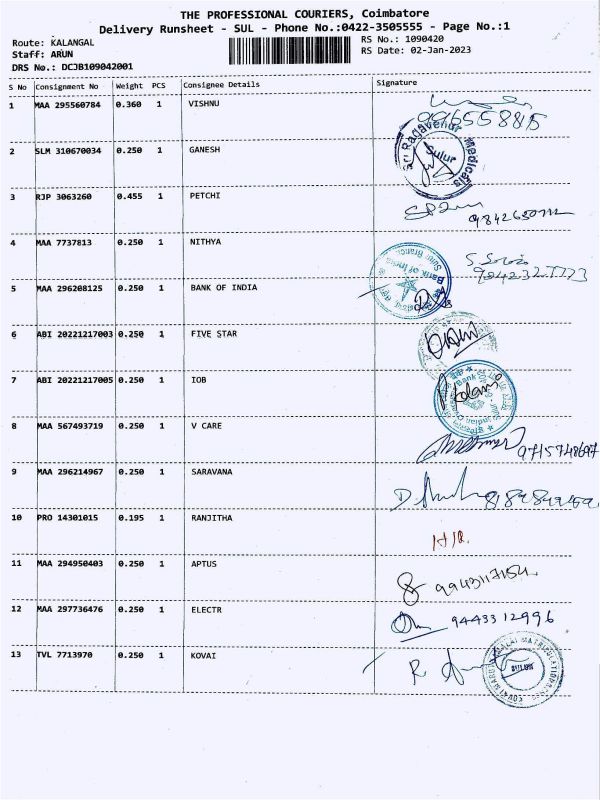 THE PROFESSIONAL COURIERS, Coimbatore
Delivery Runsheet - SUL - Phone No.:0422-3505555 - Page No.:1
Route: KALANGAL RS No.: 1090420
Staff: ARUN RS Date: 02-Jan-2023
DRS No.: DCJB109042001
S No Consignment No Weight PCS Consignee Details Signature
1 MAA 295560784 0.360 1 VISHNU
2 SLM 310670034 0.250 1 GANESH
Sri Ragavendr Medicals
Sulur
3 RJP 3063260 0.455 1 PETCHI
4 MAA 7737813 0.250 1 NITHYA
5 MAA 296208125 0.250 1 BANK OF INDIA
Bank of India
Sulur Branch
6 ABI 20221217003 0.250 1 FIVE STAR
7 ABI 20221217005 0.250 1 IOB
8 MAA 567493719 0.250 1 V CARE
9715748697
9 MAA 296214967 0.250 1 SARAVANA
10 PRO 14301015 0.195 1 RANJITHA
11 MAA 294950403 0.250 1 APTUS
9943117154
12 MAA 297736476 0.250 1 ELECTR
9443312996
13 TVL 7713970 0.250 1 KOVAI